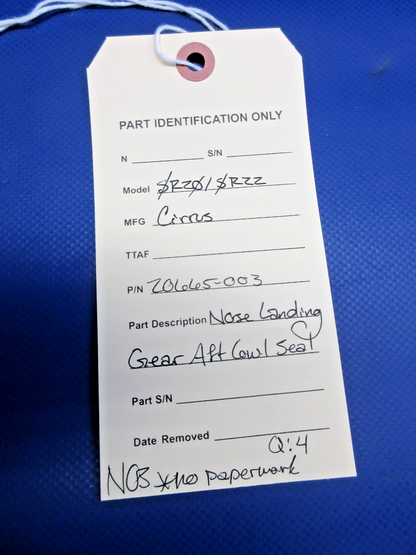 PART IDENTIFICATION ONLY
N ________ S/N ________
Model SR20/SR22
MFG Cirrus
TTAF ________
P/N 20665-003
Part Description Nose Landing
Gear Aft Cowl Seal
Part S/N ________
Date Removed ________
Q:4
NOS *no paperwork